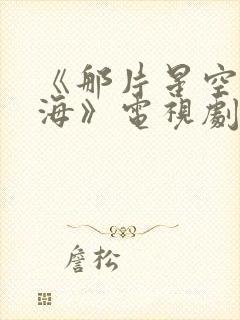 《那片星空
海》電視劇
詹松